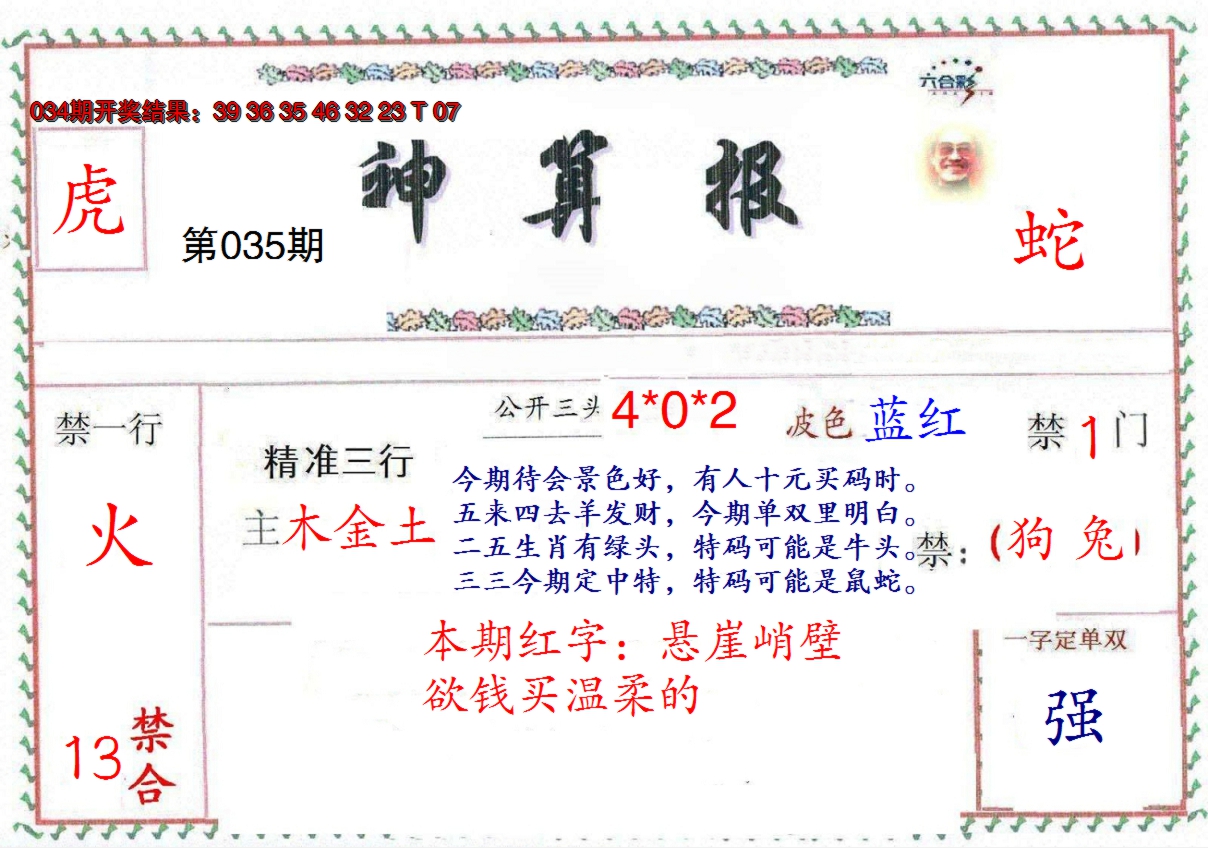 六合彩
034期开奖结果：39 36 35 46 32 23 T 07
神算报
虎
第035期
蛇
禁一行
火
13
禁合
精准三行
主木金土
公开三头 4*0*2
波色 蓝红
禁1门
今期待会景色好，有人十元买码时。
五来四去羊发财，今期单双里明白。
二五生肖有绿头，特码可能是牛头。
三三今期定中特，特码可能是鼠蛇。
禁：(狗 兔)
本期红字：悬崖峭壁
欲钱买温柔的
一字定单双
强